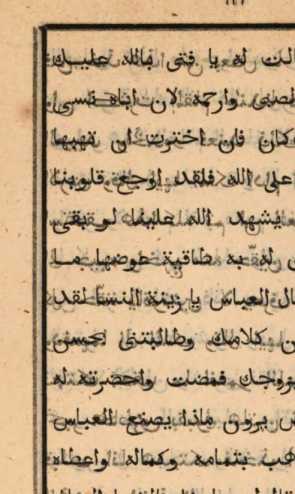 الت له يا فتى بالله عليك
الصبى وارحمه لان اباه قسى
كان فان اخترت ان تهبها
على الله فلقد اوجع قلوبنا
يشهد الله علينا لو بقى
له به طاقية عوضها ما
ال العباس يا زينة النسا لقد
ن كلامك وطالبتنى بحسن
تزوجك فمضت واحضرته له
يرون ماذا يصنع العباس
هب بتمامه وكماله واعطاه